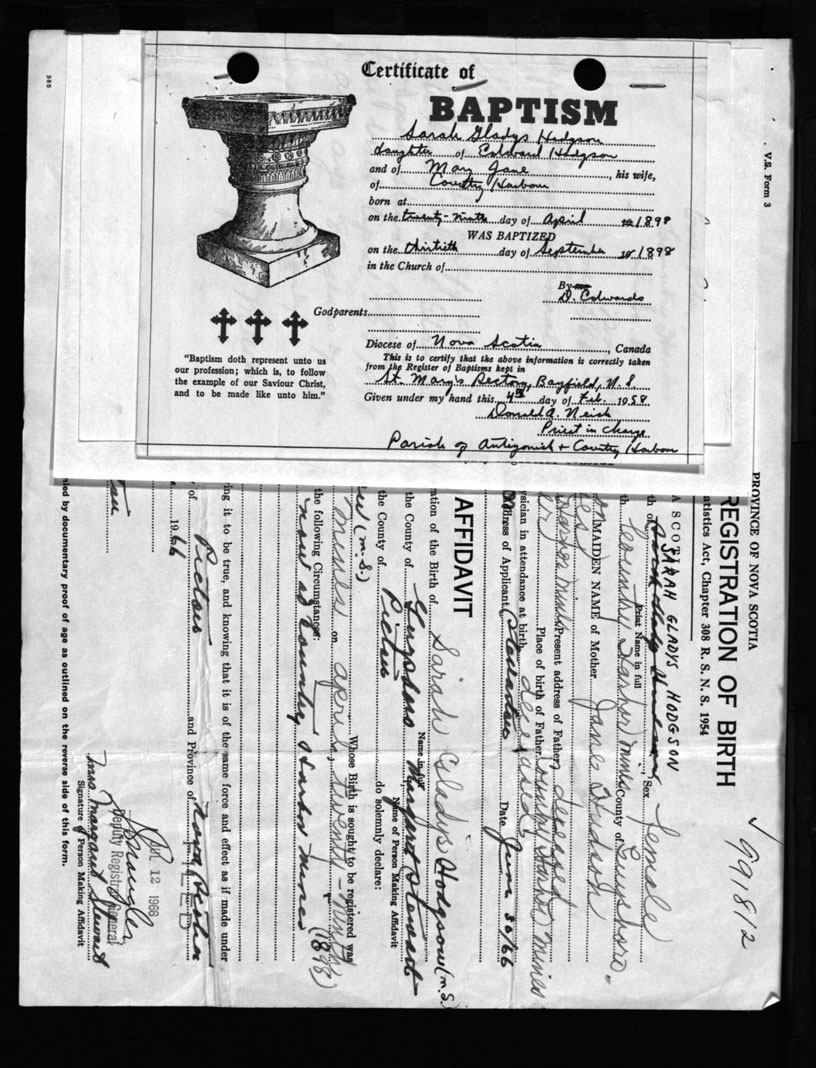 Certificate of
BAPTISM
Sarah Gladys Hodgson
daughter of Edward Hodgson
and of Mary Jane, his wife,
of Country Harbour
born at
on the twenty-ninth day of April 1898
WAS BAPTIZED
on the thirtieth day of September 1898
in the Church of
By
D. Edwards
Godparents
Diocese of Nova Scotia, Canada
This is to certify that the above information is correctly taken
from the Register of Baptisms kept in
St. Mary's Rectory, Bayfield, N.S.
Given under my hand this 4th day of Feb. 1958
Donald A. Neish
Priest in Charge
Parish of Antigonish + Country Harbour
"Baptism doth represent unto us
our profession; which is, to follow
the example of our Saviour Christ,
and to be made like unto him."
385
V.S. Form 3
PROVINCE OF NOVA SCOTIA
REGISTRATION OF BIRTH
atistics Act, Chapter 308 R. S. N. S. 1954
991812
A SCO
SARAH GLADYS HODGSON
th of Sex female
Print Name in full
th Country Harbor mines County of Guysboro.
MAIDEN NAME of Mother Jane Hudson
Harbor mines Present address of Father deceased
Place of birth of Father Country Harbor mines
ysician in attendance at birth deceased
ddress of Applicant Stellarton Date June 30/66
AFFIDAVIT
ation of the Birth of Sarah Gladys Hodgson (m.S.)
Name in full
the County of Guysboro Margaret Stewart
Name of Person Making Affidavit
the County of Pictou do solemnly declare:
(m.S.)
Whose Birth is sought to be registered was
mines on april, twenty-ninth (1898)
the following Circumstances:
now at Country Harbor mines
ing it to be true, and knowing that it is of the same force and effect as if made under
of Pictou and Province of Nova Scotia
1966
JUL 12 1966
Deputy Registrar General
Mrs Margaret Stewart
Signature of Person Making Affidavit
nied by documentary proof of age as outlined on the reverse side of this form.